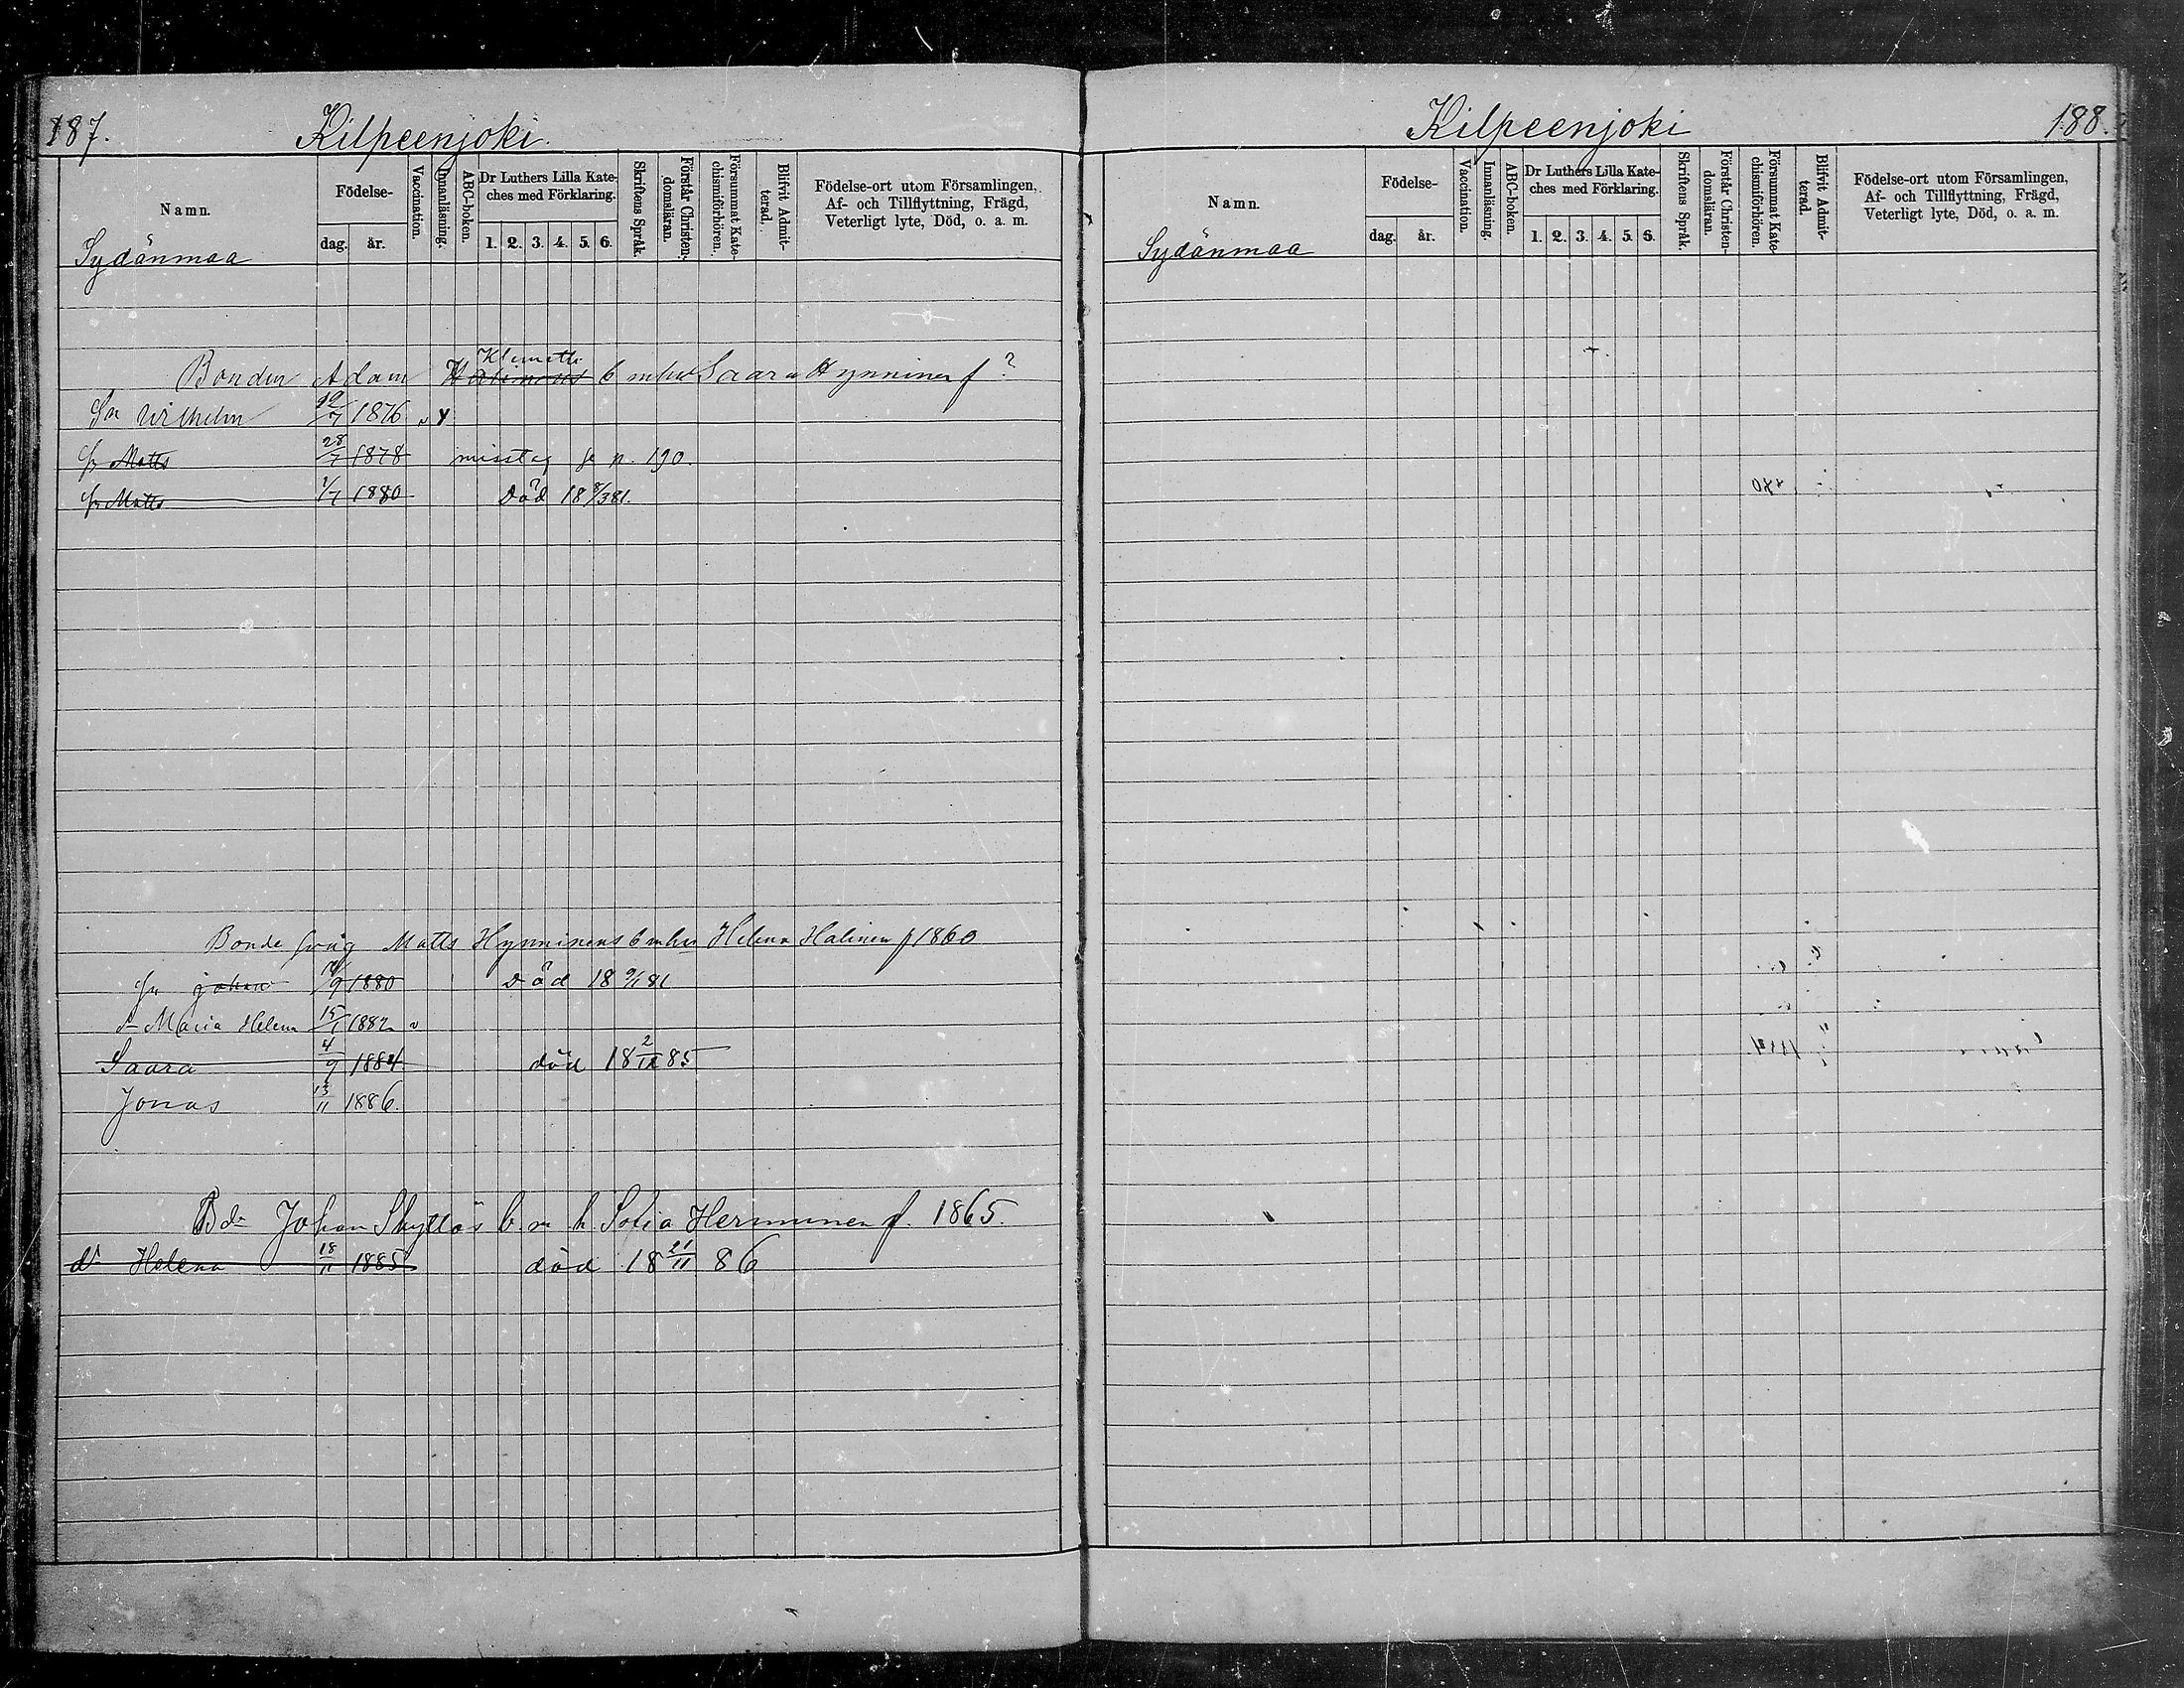 187.
Kilpeenjoki.
Namn.
Födelse-
dag. år.
Vaccination.
Innanläsning.
ABC-boken.
Dr Luthers Lilla Kate-
ches med Förklaring.
1. 2. 3. 4. 5. 6.
Skriftens Språk.
Förstår Christen-
domsläran.
Försummat Kate-
chismiförhören.
Blifvit Admit-
terad.
Födelse-ort utom Församlingen,
Af- och Tillflyttning, Frägd,
Veterligt lyte, Död, o. a. m.
Sydänmaa
Klemetti
Bonden Adam b mhu Saara Hynninen f ?
Sn Wilhelm 19/7 1876
Sn Matts 28/7 1878 misstag se p. 190.
Sn Matts 1/7 1880 Död 18 8/3 81.
Bonde Matts Hynninens b mhu Helena Halinen f 1860
Sn Johan 1880 Död 18 9/1 81
dr Maria Helena 15/1 1882
Saara 4/9 1884 död 18 2/12 85
Jonas 13/11 1886.
Bdn Johan Skyttäs b. m h Sofia Hermunen f. 1865.
dr Helena 18/11 1885 död 18 21/11 86
Kilpeenjoki
188.
Namn.
Födelse-
dag. år.
Vaccination.
Innanläsning.
ABC-boken.
Dr Luthers Lilla Kate-
ches med Förklaring.
1. 2. 3. 4. 5. 6.
Skriftens Språk.
Förstår Christen-
domsläran.
Försummat Kate-
chismiförhören.
Blifvit Admit-
terad.
Födelse-ort utom Församlingen,
Af- och Tillflyttning, Frägd,
Veterligt lyte, Död, o. a. m.
Sydänmaa